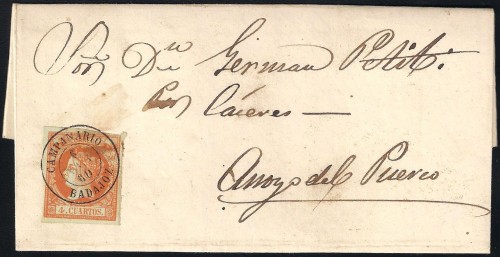 Sor Dn German Petit.
Por Cáceres —
Arroyo del Puerco
CAMPANARIO
60
BADAJOZ
4. CUARTOS.